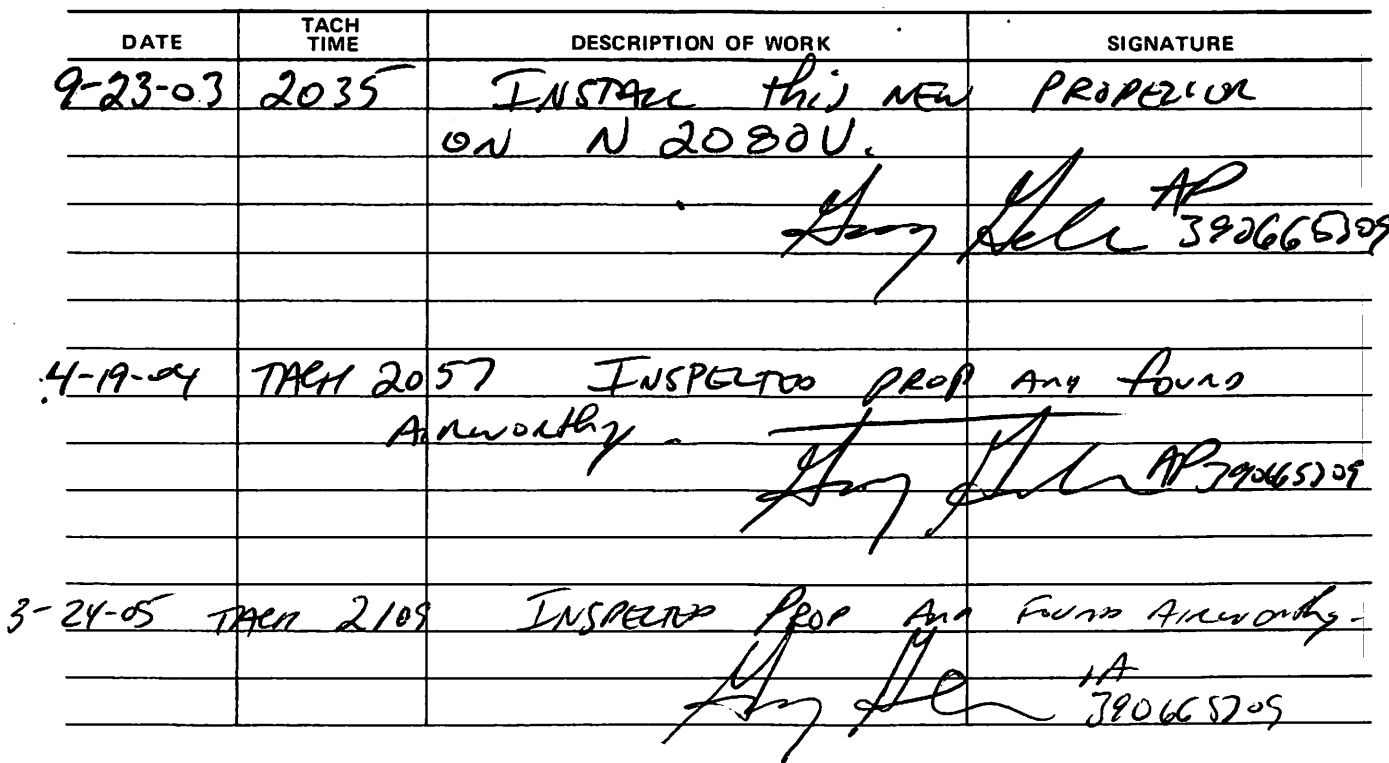 DATE TACH TIME DESCRIPTION OF WORK SIGNATURE
9-23-03 2035 INSTALL this NEW PROPELLOR
ON N 2080U.
AP
4-19-04 TACH 2057 INSPECTED PROP AND found
Airworthy.
AP
3-24-05 TACH 2109 INSPECTED PROP AND FOUND Airworthy.
IA